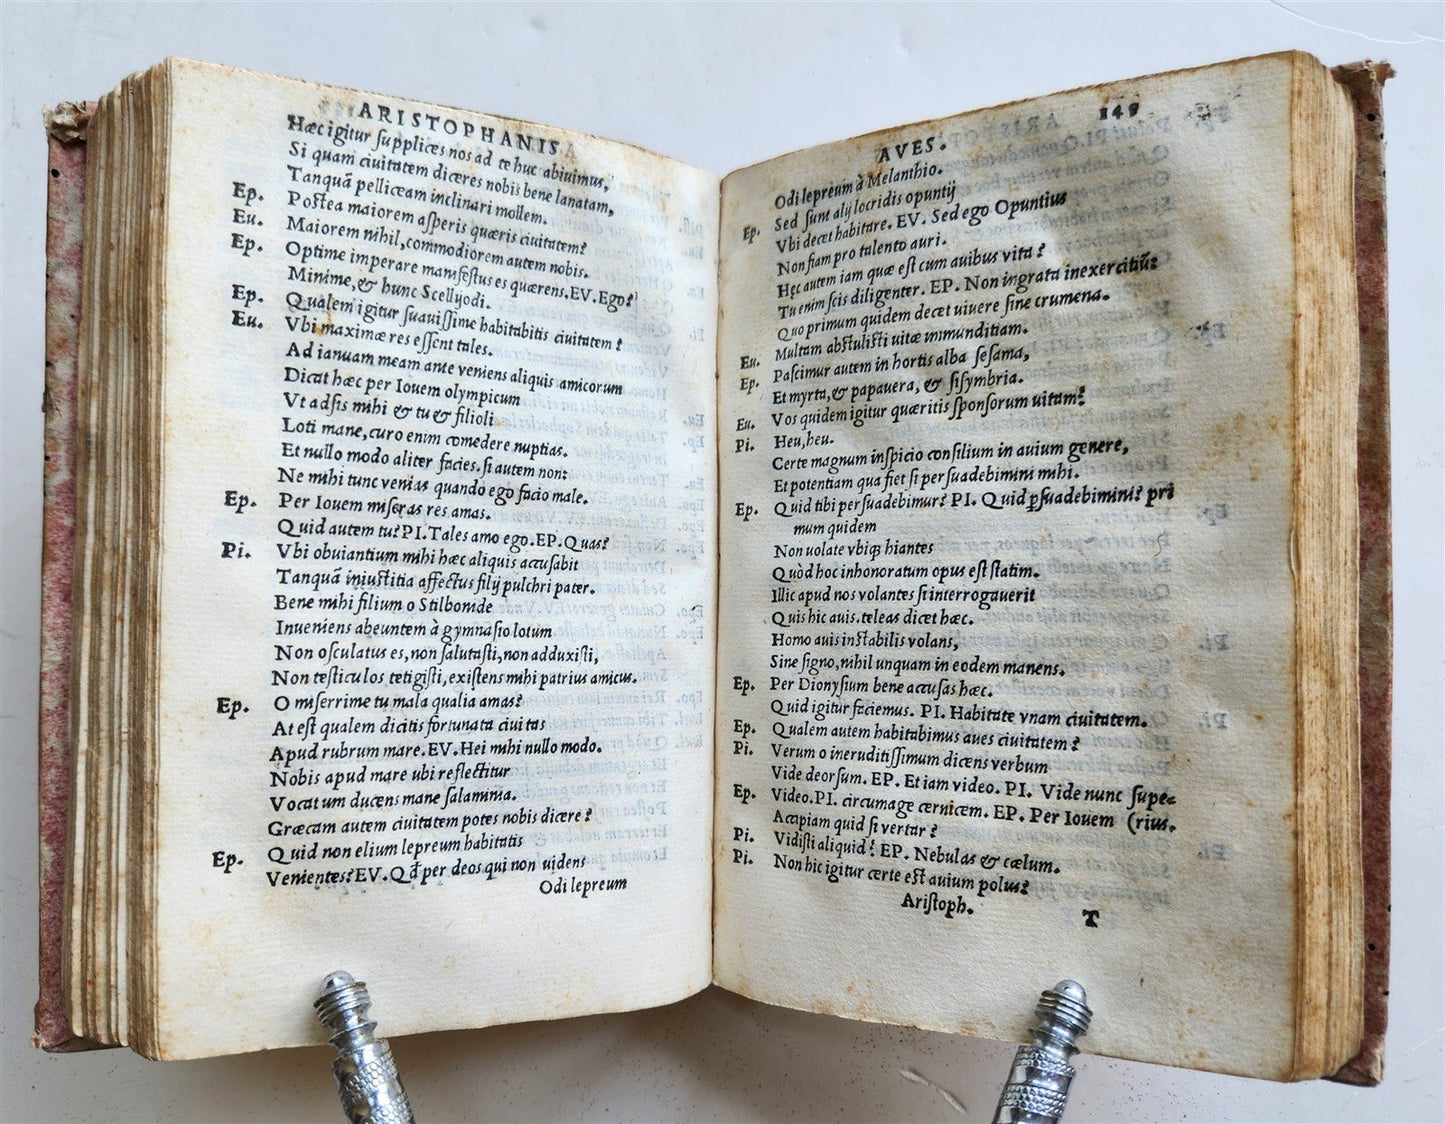 ARISTOPHANIS
Hæc igitur supplices nos ad te huc abiuimus,
Si quam ciuitatem diceres nobis bene lanatam,
Tanquã pelliceam inclinari mollem.
Ep. Postea maiorem asperis quæris ciuitatem?
Eu. Maiorem nihil, commodiorem autem nobis.
Ep. Optime imperare manifestus es quærens. EV. Ego?
Minime, & hunc Scellyodi.
Ep. Qualem igitur suauissime habitabitis ciuitatem?
Eu. Vbi maximæ res essent tales.
Ad ianuam meam ante veniens aliquis amicorum
Dicat hæc per Iouem olympicum
Vt adsis mihi & tu & filioli
Loti mane, curo enim comedere nuptias.
Et nullo modo aliter facies. si autem non:
Ne mihi tunc venias quando ego facio male.
Ep. Per Iouem miseras res amas.
Quid autem tu? PI. Tales amo ego. EP. Quas?
Pi. Vbi obuiantium mihi hæc aliquis accusabit
Tanquã iniustitia affectus filij pulchri pater.
Bene mihi filium o Stilbonide
Inueniens abeuntem à gymnasio lotum
Non osculatus es, non salutasti, non adduxisti,
Non testiculos tetigisti, existens mihi patrius amicus.
Ep. O miserrime tu mala qualia amas?
At est qualem dicitis fortunata ciuitas
Apud rubrum mare. EV. Hei mihi nullo modo.
Nobis apud mare ubi reflectitur
Vocatum ducens mane salaminia.
Græcam autem ciuitatem potes nobis dicere?
Ep. Quid non elium lepreum habitatis
Venientes? EV. Qđ per deos qui non uidens
Odi lepreum
AVES. 149
Odi lepreum à Melanthio.
Ep. Sed sunt alij locridis opuntij
Vbi decet habitare. EV. Sed ego Opuntius
Non fiam pro talento auri.
Hęc autem iam quæ est cum auibus vita?
Tu enim scis diligenter. EP. Non ingrata in exercitiũ:
Quo primum quidem decet uiuere sine crumena.
Eu. Multam abstulisti uitæ immunditiam.
Ep. Pascimur autem in hortis alba sesama,
Et myrta, & papauera, & sisymbria.
Eu. Vos quidem igitur quæritis sponsorum uitam?
Pi. Heu, heu.
Certe magnum inspicio consilium in auium genere,
Et potentiam qua fiet si persuadebimini mihi.
Ep. Quid tibi persuadebimur? PI. Quid ꝑsuadebimini? pri
mum quidem
Non uolate vbiqꝫ hiantes
Quòd hoc inhonoratum opus est statim.
Illic apud nos volantes si interrogauerit
Quis hic auis. teleas dicet hæc.
Homo auis instabilis volans,
Sine signo, nihil unquam in eodem manens.
Ep. Per Dionysium bene accusas hæc.
Quid igitur faciemus. PI. Habitate vnam ciuitatem.
Ep. Qualem autem habitabimus aues ciuitatem?
Pi. Verum o ineruditissimum dicens verbum
Vide deorsum. EP. Etiam video. PI. Vide nunc supe-
Ep. Video. PI. circumage ceruicem. EP. Per Iouem (rius.
Accipiam quid si vertar?
Pi. Vidisti aliquid? EP. Nebulas & cælum.
Pi. Non hic igitur certe est auium polus?
Aristoph. T